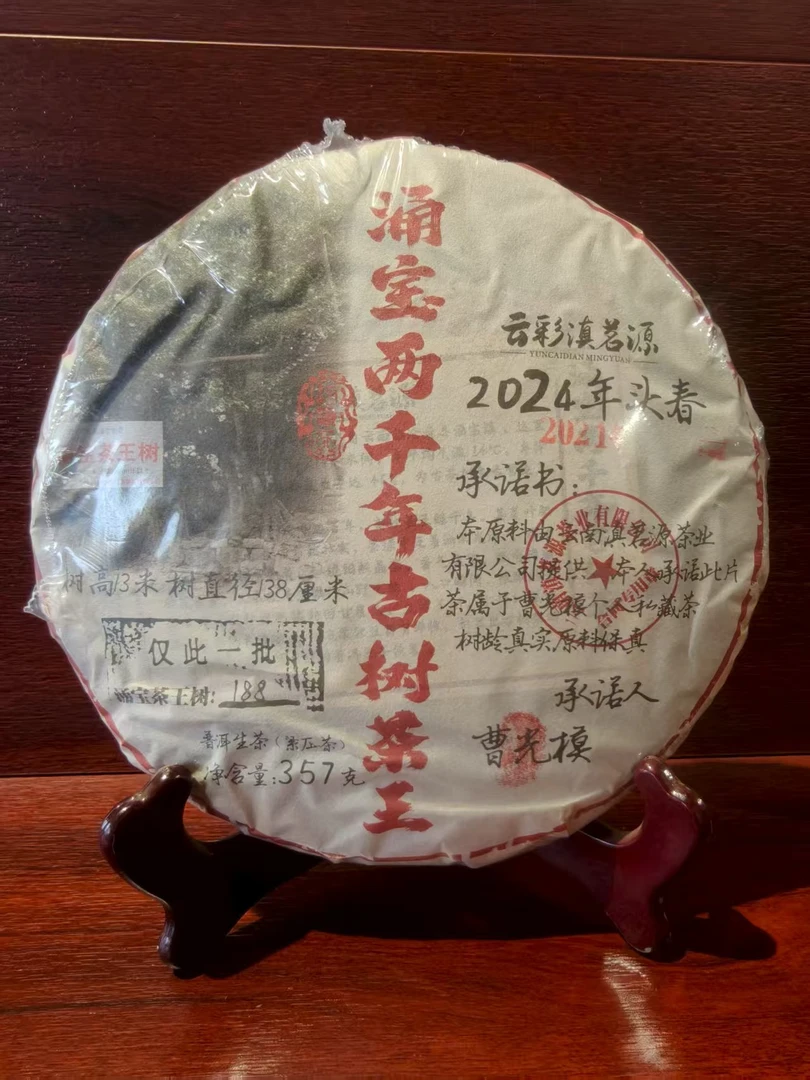 涌宝两千年古树茶王
云彩滇茗源
YUNCAIDIAN MINGYUAN
2024年头春
2024
承诺书:
本原料由云南滇茗源茶业
有限公司提供 本人承诺此片
茶属于曹光模个人私藏茶
树龄真实原料保真
承诺人
曹光模
茶王树
树高13米 树直径138厘米
仅此一批
涌宝茶王树: 188
普洱生茶(紧压茶)
净含量:357克